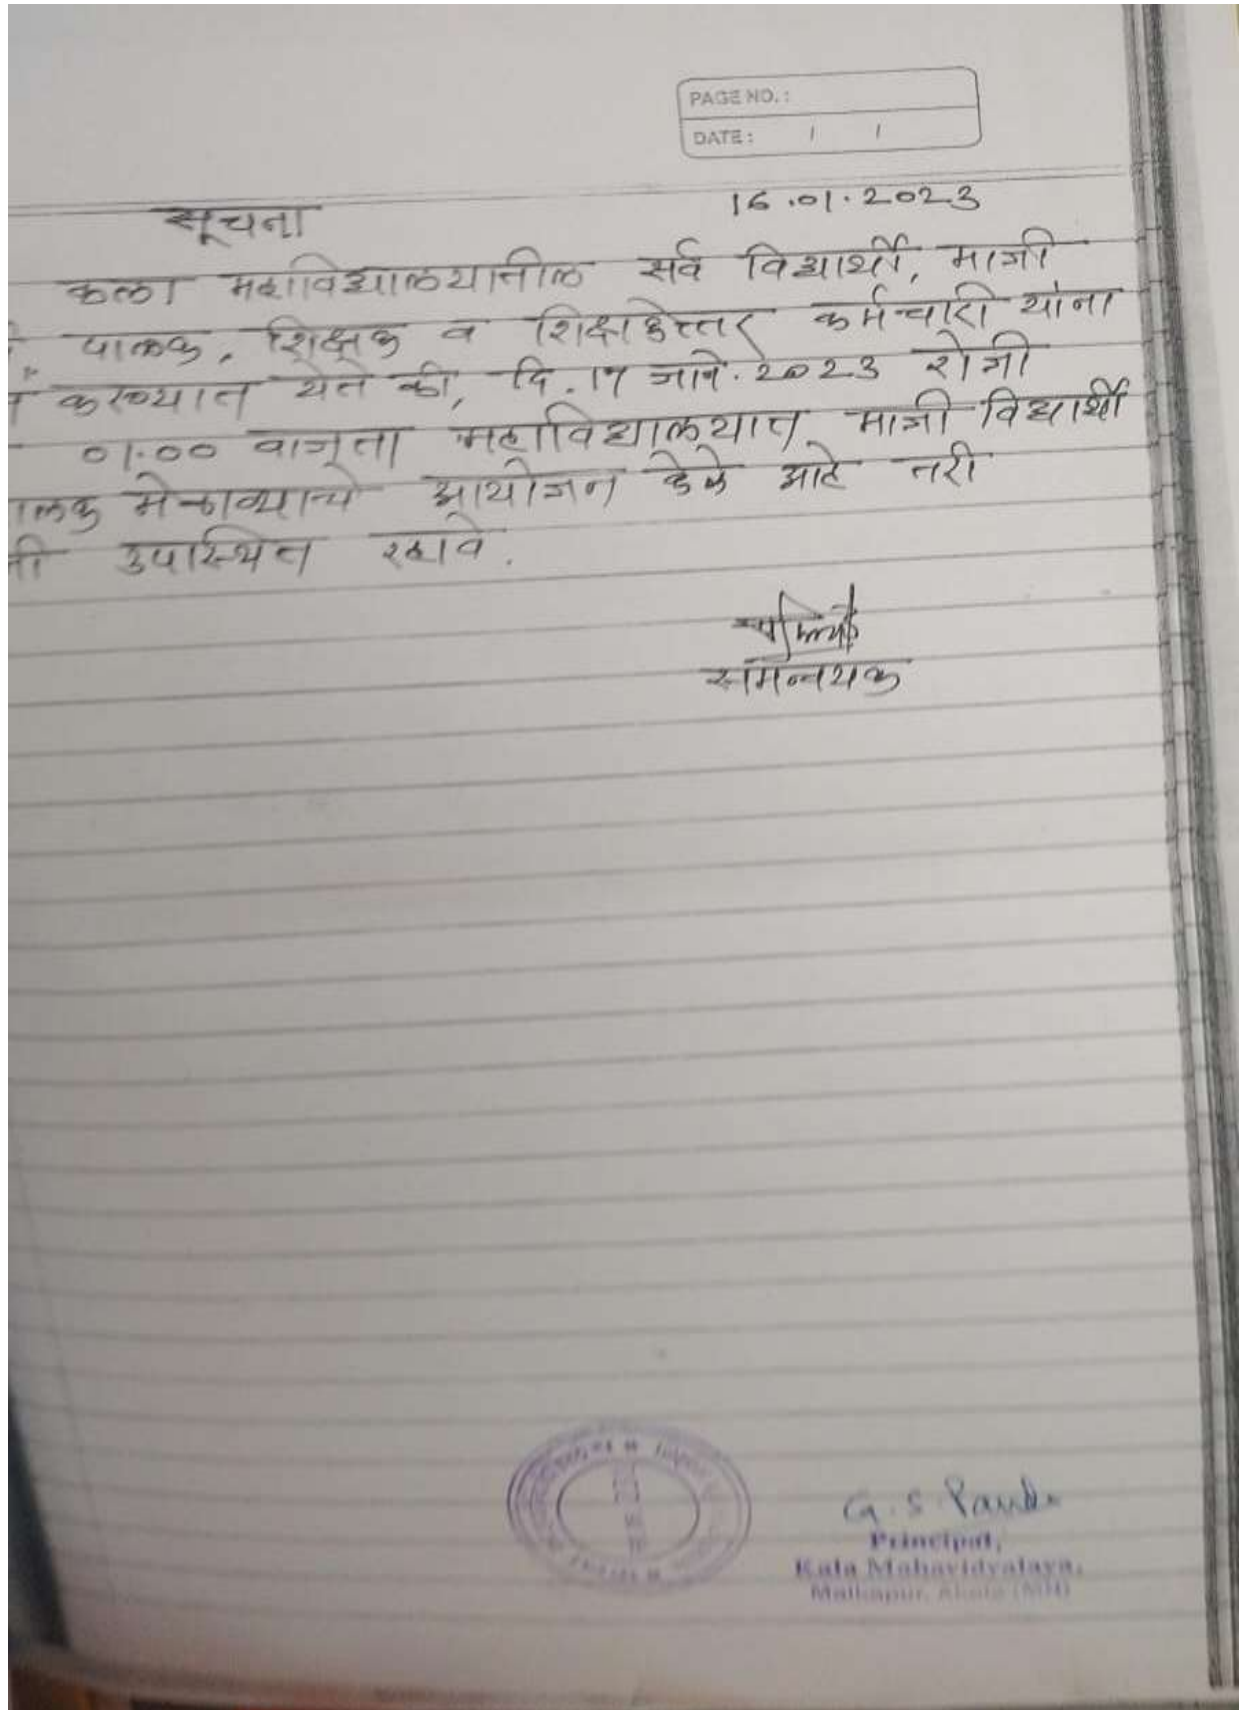 PAGE NO. :
DATE : / /
सूचना 16.01.2023
कला महाविद्यालयातील सर्व विद्यार्थी, माजी
पालक, शिक्षक व शिक्षकेत्तर कर्मचारी यांना
करण्यात येते की, दि. 17 जाने. 2023 रोजी
01.00 वाजता महाविद्यालयात माजी विद्यार्थी
ालक मेळाव्याचे आयोजन केले आहे तरी
नी उपस्थित रहावे.
समन्वयक
G. S. Pande
Principal,
Kala Mahavidyalaya,
Malkapur, Akola (MH)